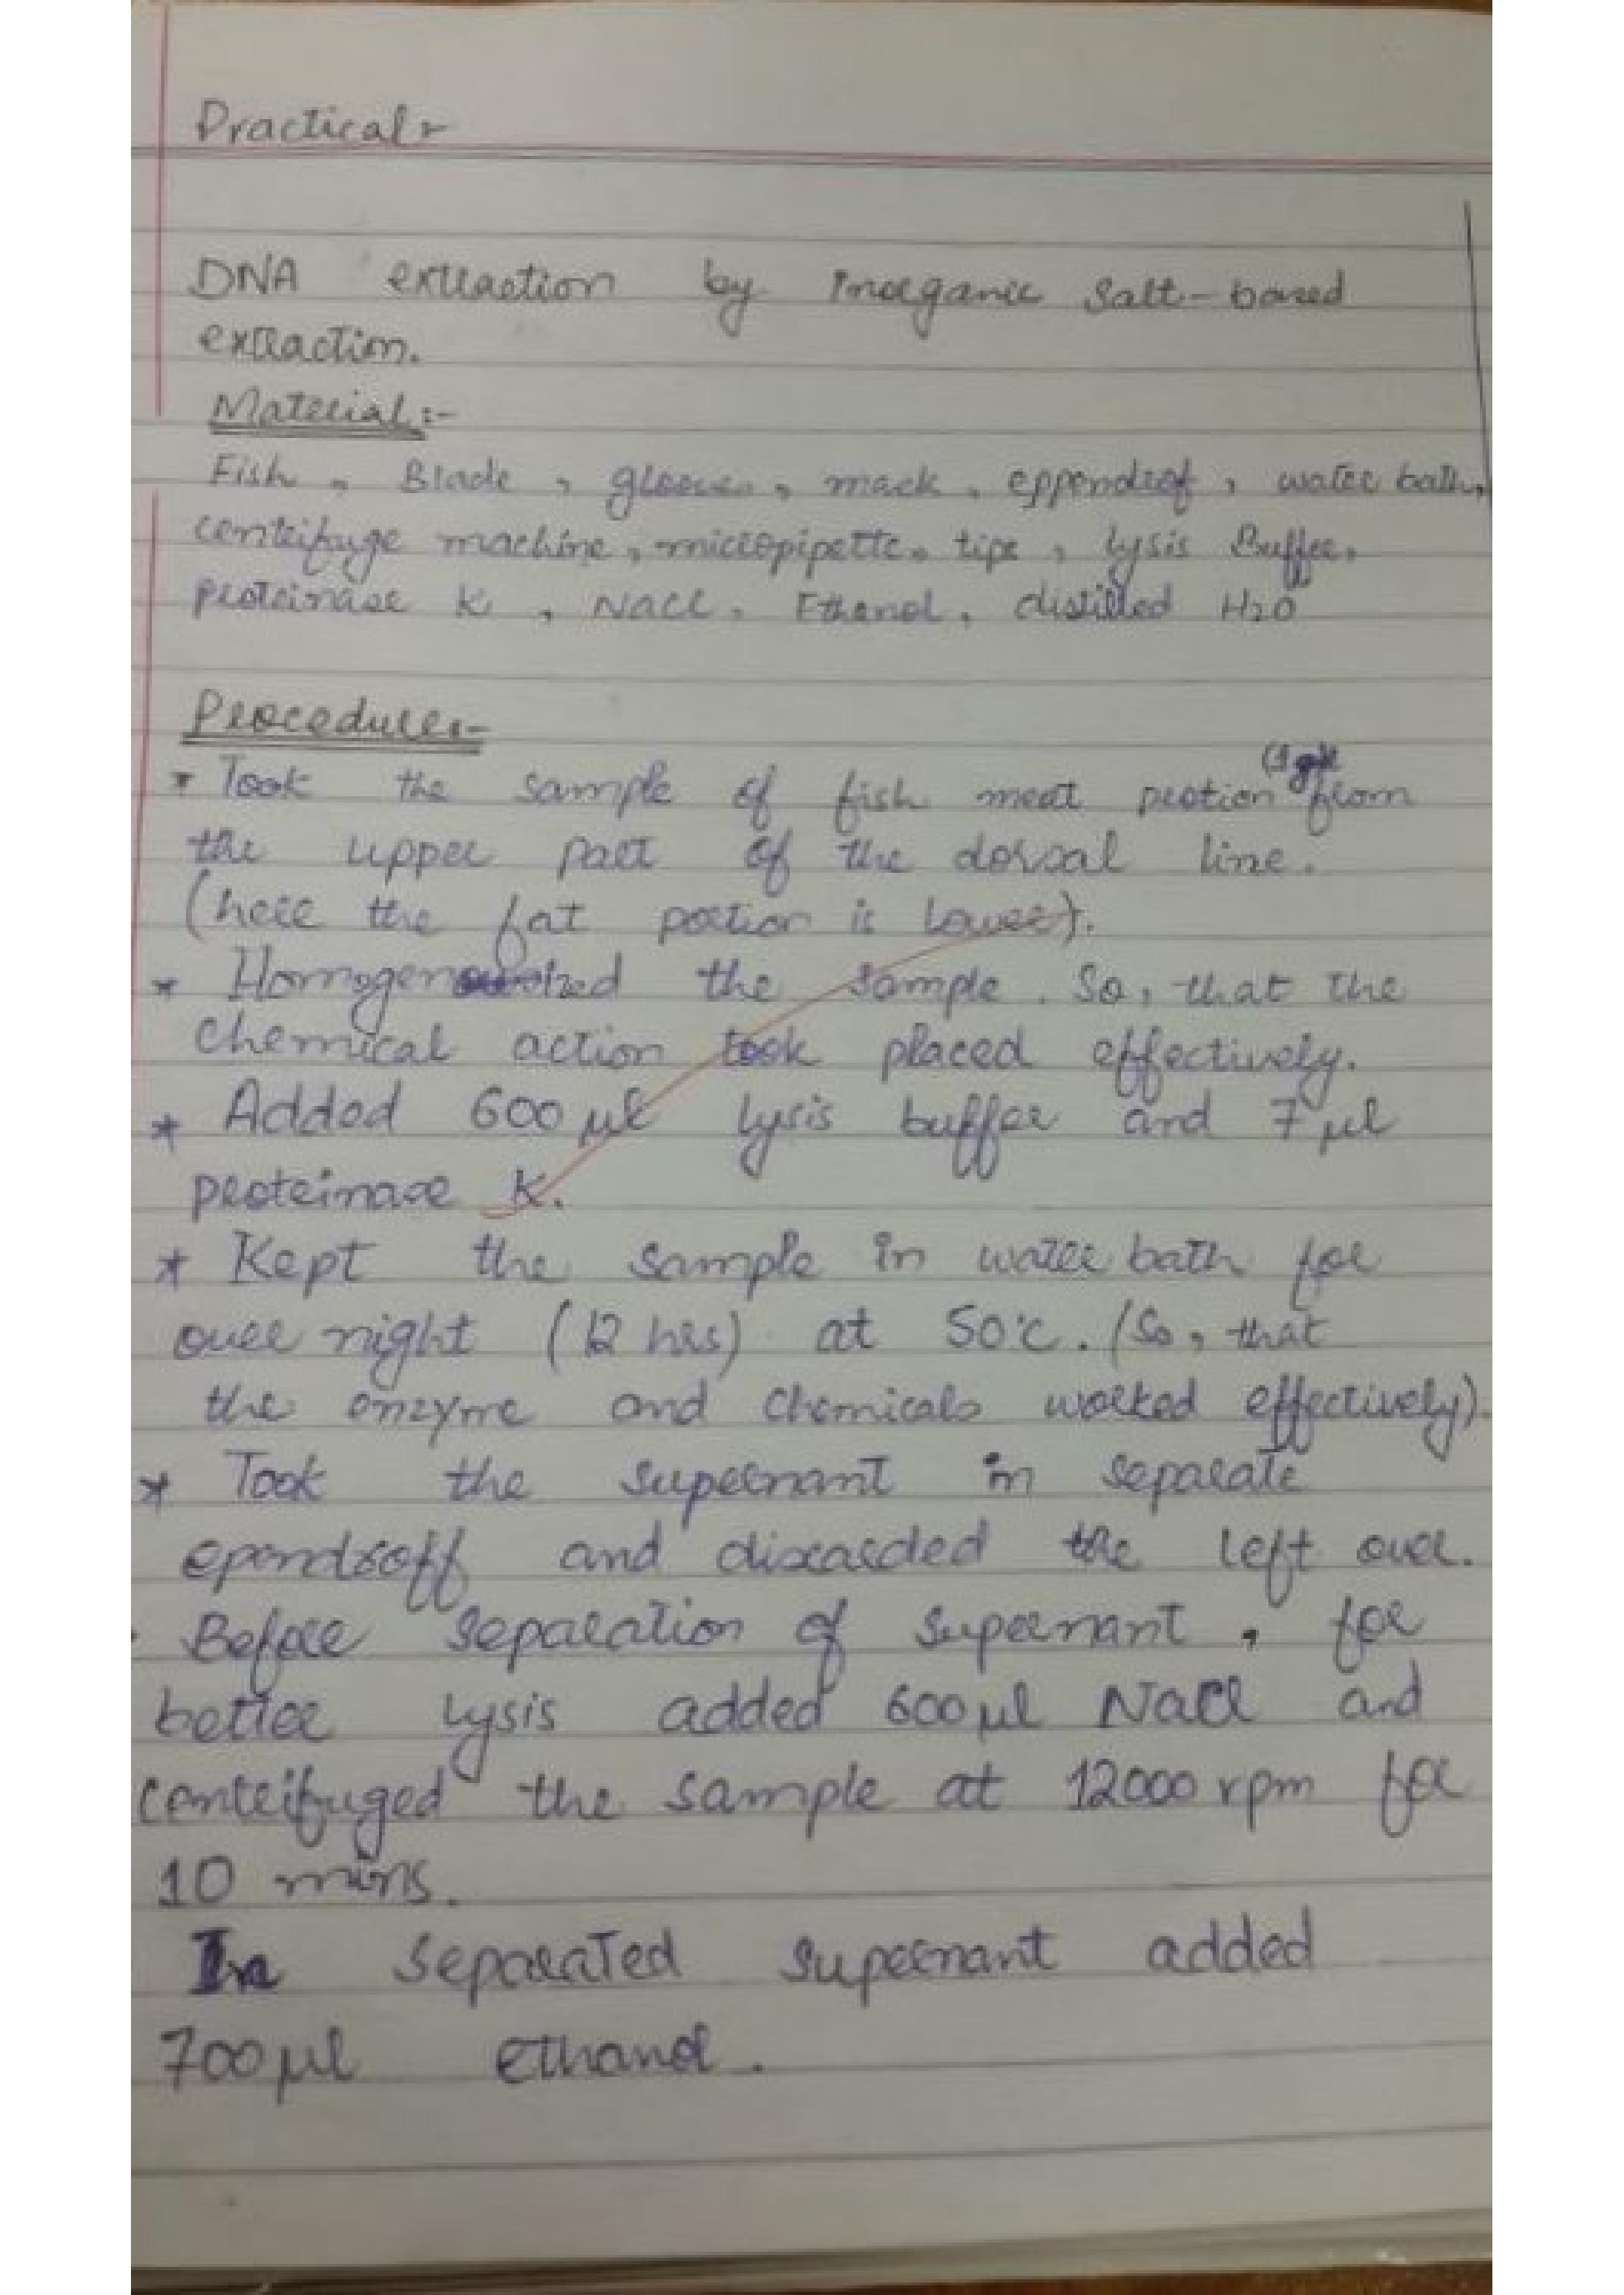 Practical:-
DNA extraction by inorganic salt-based
extraction.
Material:-
Fish, Blade, gloves, mask, eppendrof, water bath,
centrifuge machine, micropipette, tips, lysis Buffer,
proteinase K, NaCl, Ethanol, distilled H2O
Procedure:-
* Took the sample of fish meat protion from
the upper part of the dorsal line.
(here the fat portion is lower).
* Homogenized the sample. So, that the
chemical action took placed effectively.
* Added 600 μl lysis buffer and 7 μl
proteinase K.
* Kept the sample in water bath for
over night (12 hrs) at 50°C. (So, that
the enzyme and chemicals worked effectively).
* Took the supernant in separate
ependroff and discarded the left over.
. Before separation of supernant, for
better lysis added 600 μl NaCl and
centrifuged the sample at 12000 rpm for
10 mins.
In separated supernant added
700 μl ethanol.